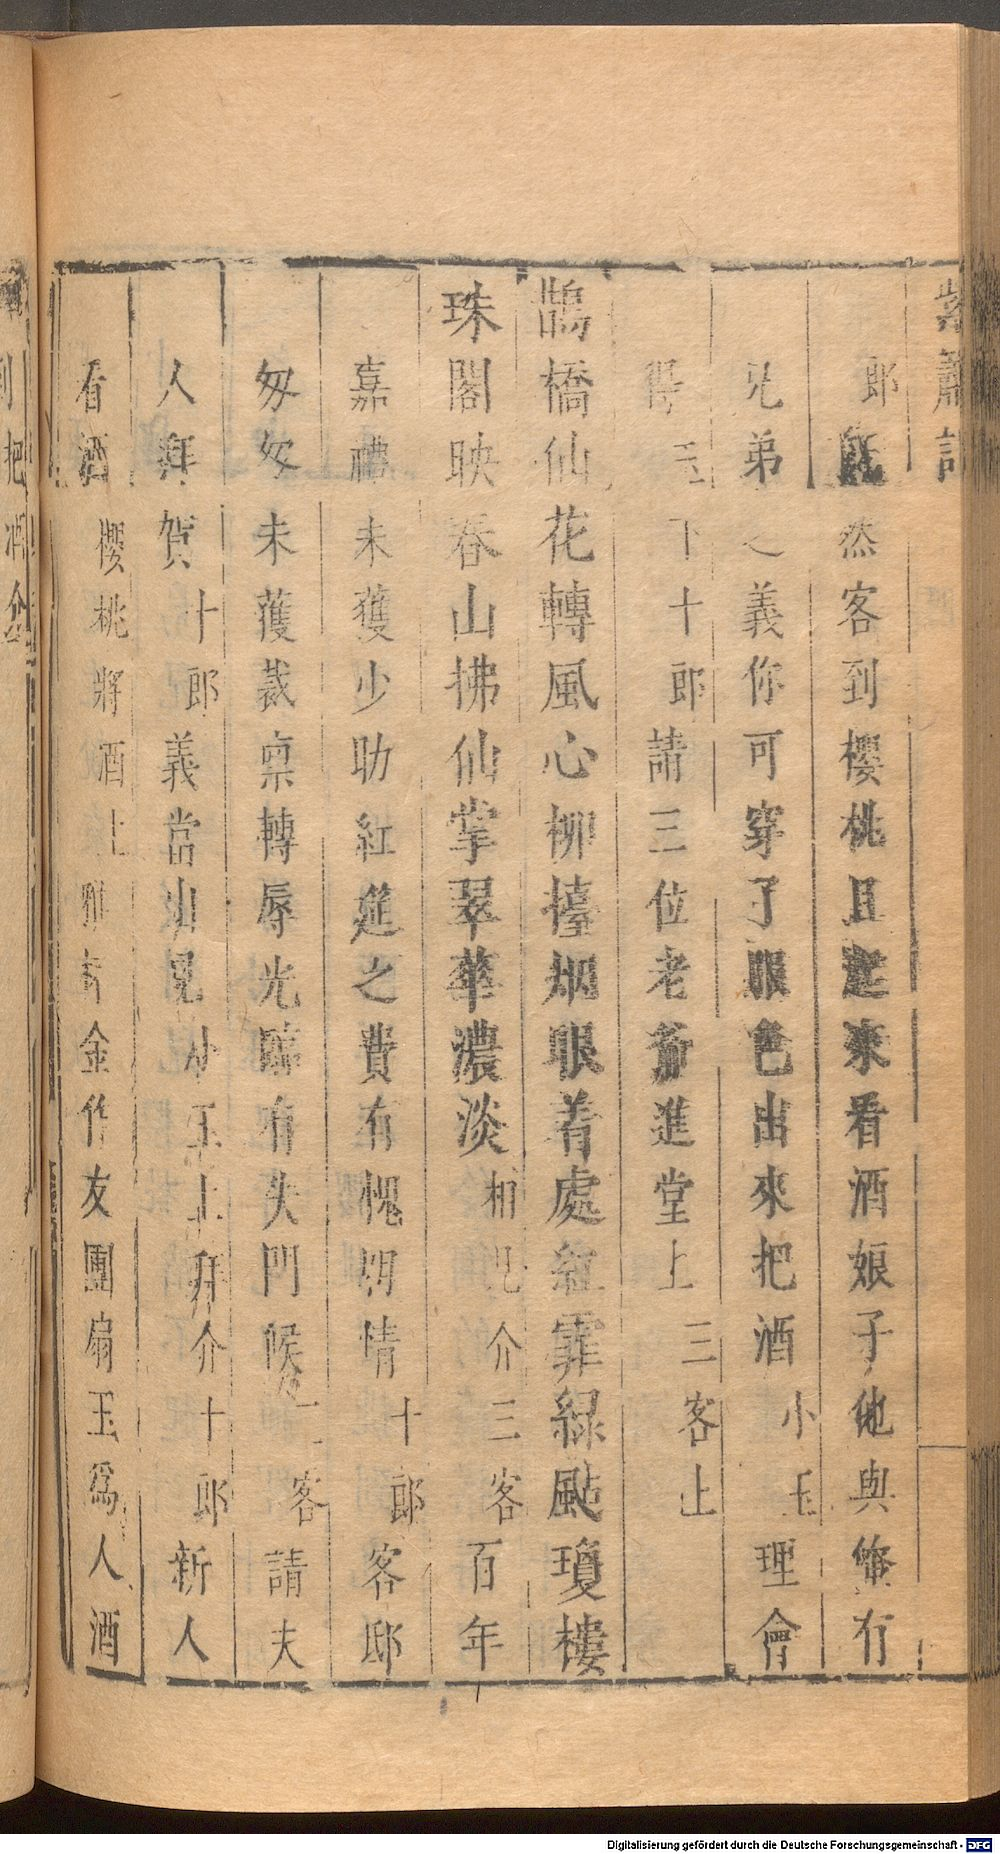 紫簫記
郎 果然客到櫻桃且起來看酒娘子他與俺有
兄弟之義你可穿了服色出來把酒 小玉 理會
得 玉下十郎 請三位老爺進堂上 三客上
鵲橋仙花轉風心柳擡烟眼着處紅霏綠颭瓊樓
珠閣映春山拂仙掌翠華濃淡 相見介三客 百年
嘉禮未獲少助紅筵之費有愧朋情 十郎 客邸
匆匆未獲裁稟轉辱光臨有失門候 二客 請夫
人拜賀 十郎 義當出見 小玉上拜介十郎 新人
看酒 櫻桃將酒上 卿有金作友團扇玉爲人酒
到把酒介
Digitalisierung gefördert durch die Deutsche Forschungsgemeinschaft - DFG